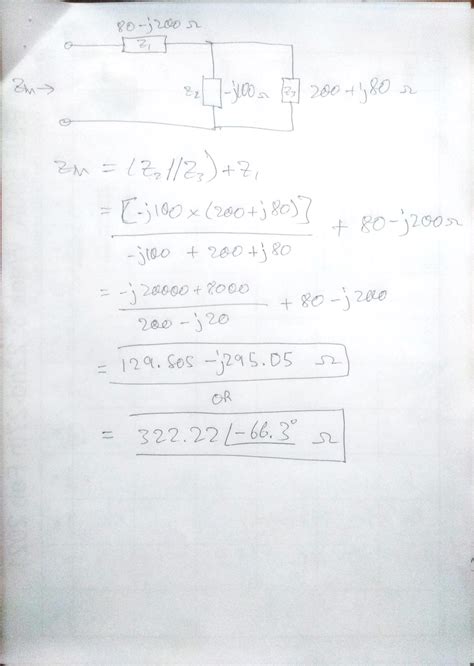 80-j200Ω
Z1
Zin→
Z2
-j100Ω
Z3
200+j80 Ω
Zin = (Z2//Z3)+Z1
= [-j100×(200+j80)] / -j100 + 200+j80 + 80-j200Ω
= -j20000+8000 / 200-j20 + 80-j200
= 129.505-j295.05 Ω
OR
= 322.22∠-66.3° Ω